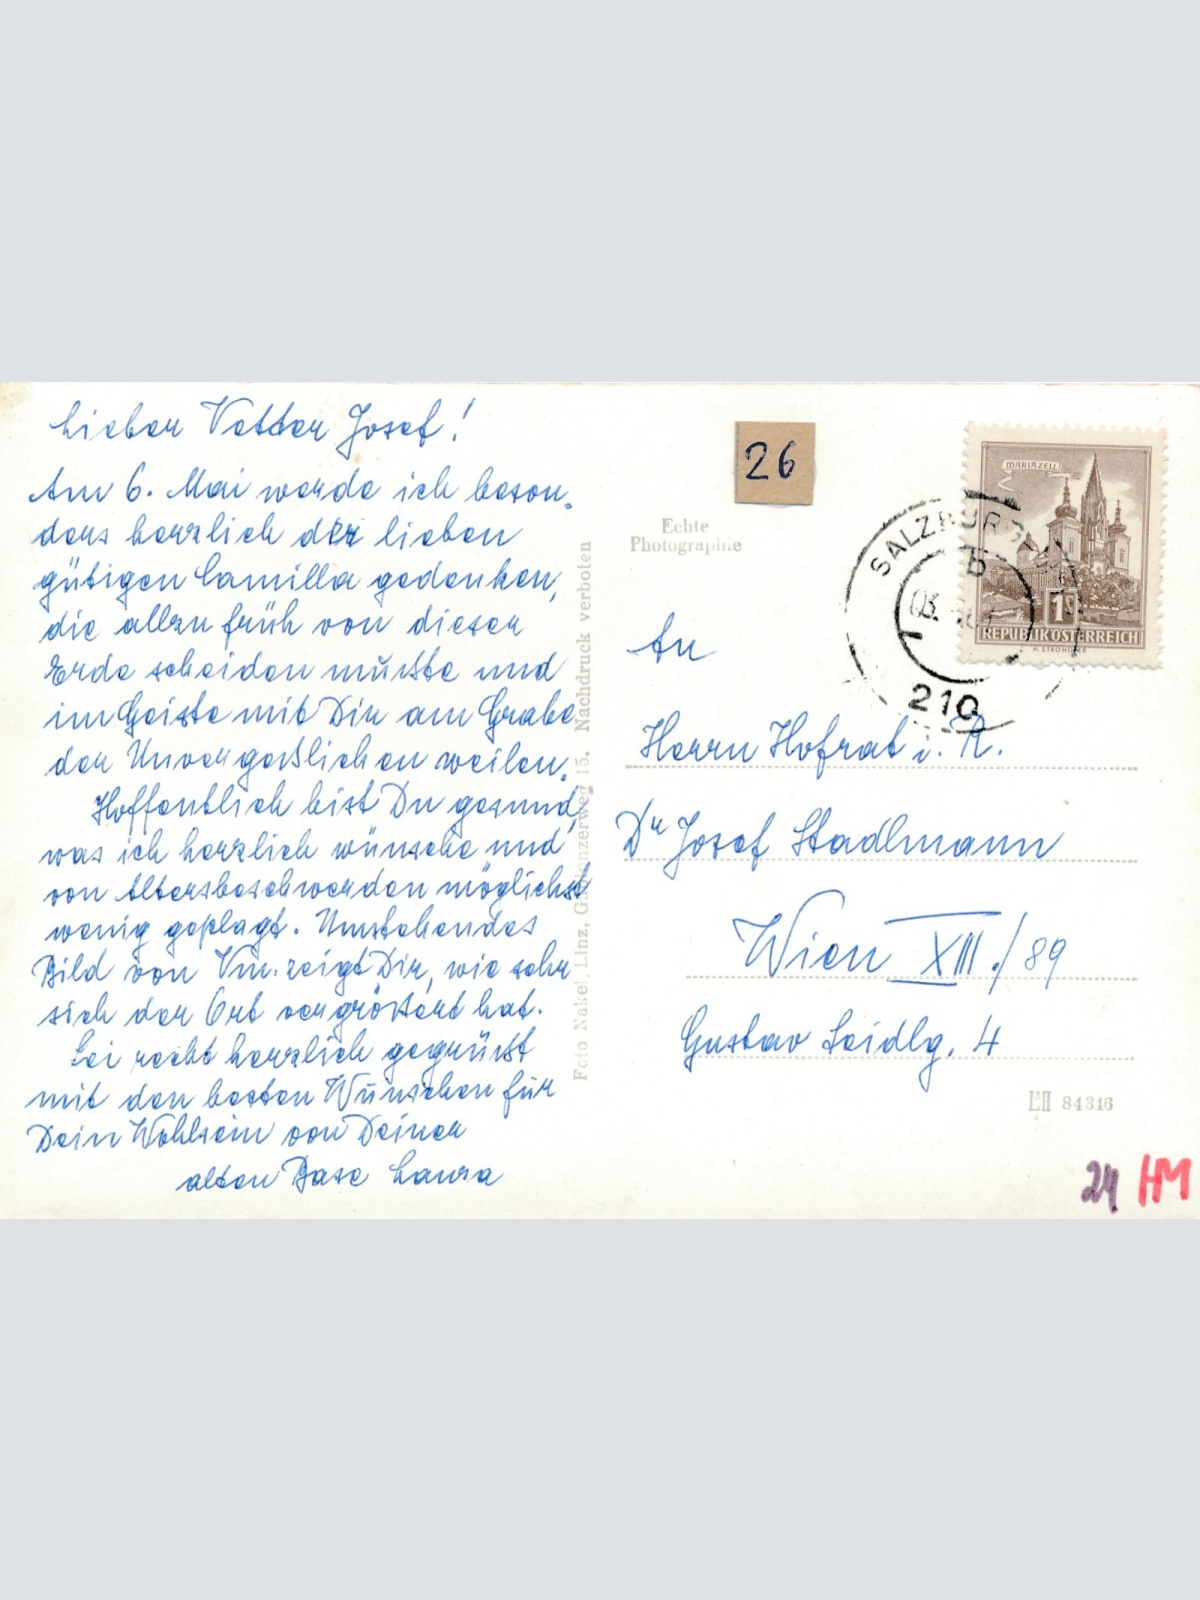 Lieber Vetter Josef!
Am 6. Mai werde ich beson-
ders herzlich der lieben
gütigen Camilla gedenken,
die allzu früh von dieser
Erde scheiden mußte und
im Geiste mit Dir am Grabe
der Unvergeßlichen weilen.
Hoffentlich bist Du gesund,
was ich herzlich wünsche und
von Altersbeschwerden möglichst
wenig geplagt. Umstehendes
Bild von zeigt Dir, wie sehr
sich der Ort vergrößert hat.
Sei recht herzlich gegrüßt
mit den besten Wünschen für
Dein Wohlsein von Deiner
alten Base Laura
Foto Nakel, Linz, 15. Nachdruck verboten
26
Echte
Photographie
MARIAZELL
1
REPUBLIK ÖSTERREICH
H. STROHOFER
SALZBURG
b
210
An
Herrn Hofrat i. R.
Dr Josef Stadlmann
Wien XIII./89
Gustav Seidlg. 4
84316
24 HM